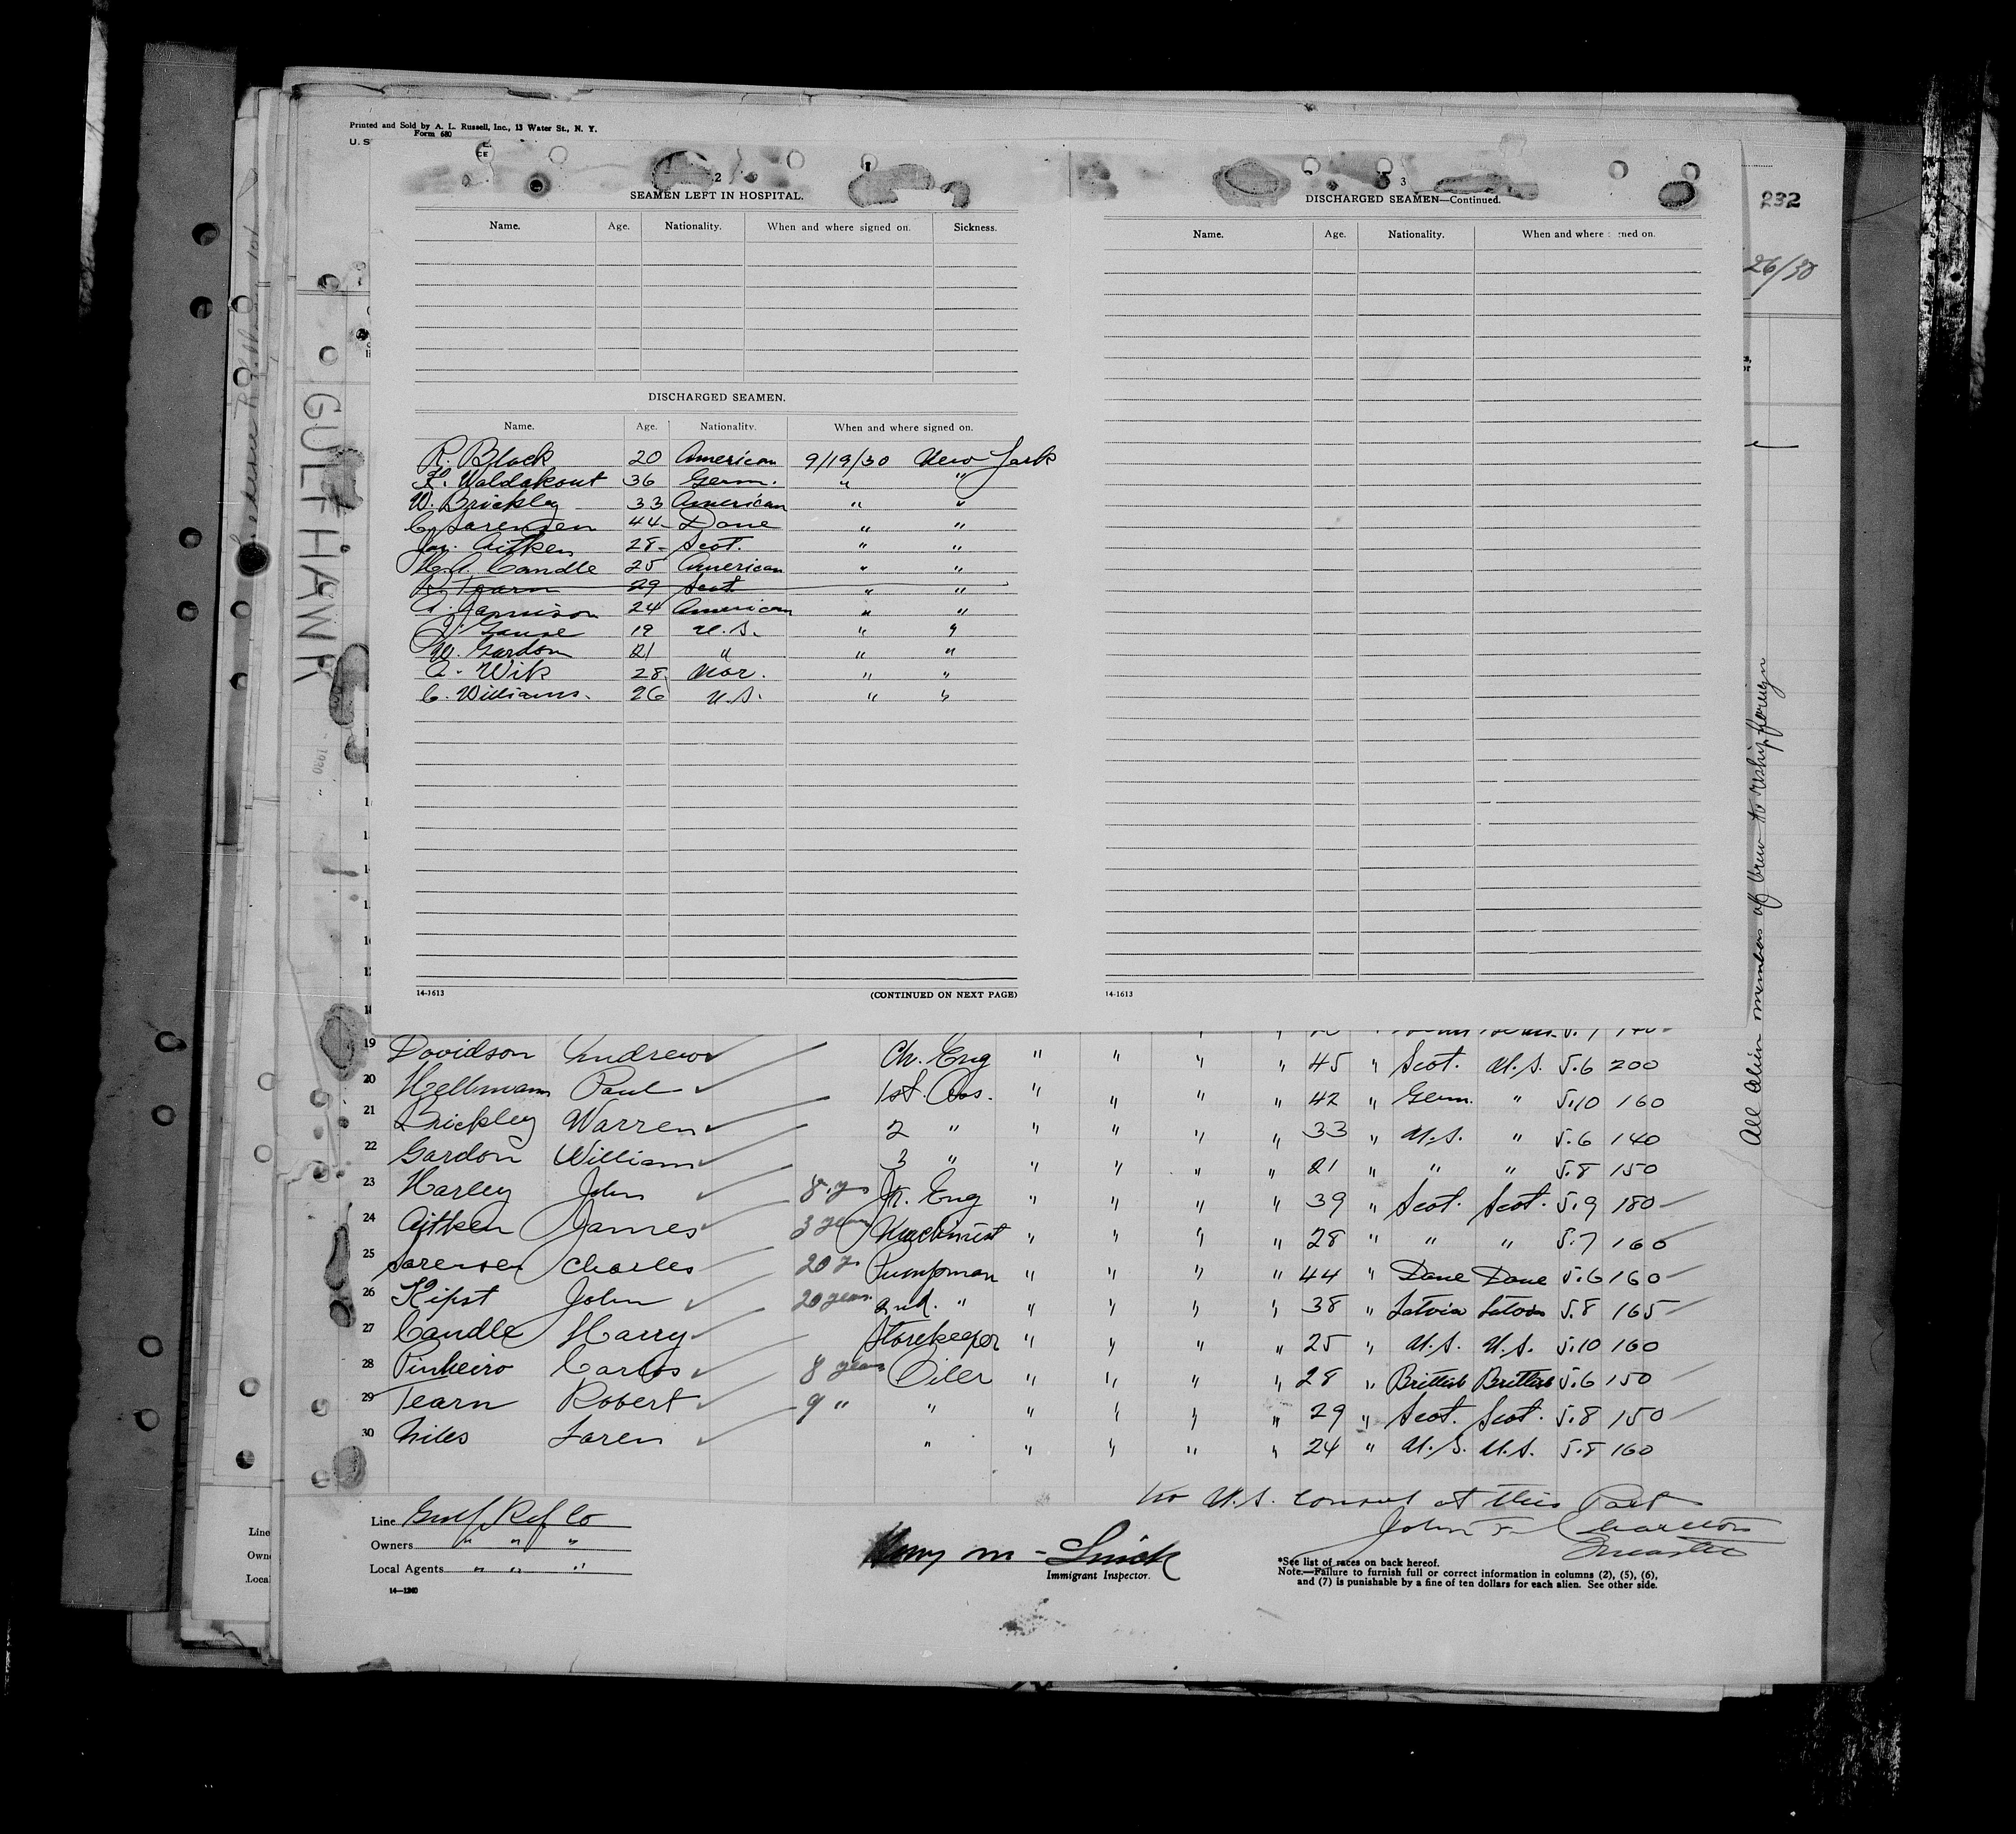 Printed and Sold by A. L. Russell, Inc., 13 Water St., N. Y.
Form 680
U. S
2
SEAMEN LEFT IN HOSPITAL.
Name. Age. Nationality. When and where signed on. Sickness.
DISCHARGED SEAMEN.
Name. Age. Nationality. When and where signed on.
R. Block 20 American 9/19/30 New York
K. Waldakout 36 Germ. " "
W. Brickley 33 American " "
C. Sorensen 44 - Dane " "
Jas. Aitken 28 - Scot. " "
H. A. Candle 25 American " "
R. Tearn 29 Scot " "
A. Jamison 24 American " "
J. Gause 19 U.S. " "
W. Gordon 21 " " "
A. Wik 28 Nor. " "
C. Williams. 26 U.S. " "
14-1613 (CONTINUED ON NEXT PAGE)
3
DISCHARGED SEAMEN—Continued.
Name. Age. Nationality. When and where ned on.
14-1613
232
26/30
GULFHAWK
All alien members of crew to reship foreign
19 Davidson Andrew Ch. Eng " " " " 45 " Scot. U.S. 5.6 200
20 Hellmann Paul 1st. Ass. " " " " 42 " Germ. " 5.10 160
21 Brickley Warren 2 " " " " " 33 " U.S. " 5.6 140
22 Gordon William 3 " " " " " 21 " " " 5.8 150
23 Harley John 8 yrs Jr. Eng " " " " 39 " Scot. Scot. 5.9 180
24 Aitken James 3 years Machinist " " " " 28 " " " 5.7 160
25 Sorensen Charles 20 yrs Pumpman " " " " 44 " Dane Dane 5.6 160
26 Kipst John 20 years 2nd. " " " " " 38 " Latvia Latvia 5.8 165
27 Candle Harry Storekeeper " " " " 25 " U.S. U.S. 5.10 160
28 Pinheiro Carlos 8 years Oiler " " " " 28 " Brittish Brittish 5.6 150
29 Tearn Robert 9 " " " " " " 29 " Scot. Scot. 5.8 150
30 Niles Loren " " " " " 24 " U.S. U.S. 5.8 160
No U.S. Consul at this Port
John F. Charlton
Line Gulf Ref Co
Owners " " "
Local Agents " " "
14—1240
Immigrant Inspector.
*See list of races on back hereof.
Note.—Failure to furnish full or correct information in columns (2), (5), (6),
and (7) is punishable by a fine of ten dollars for each alien. See other side.
Line
Own
Local